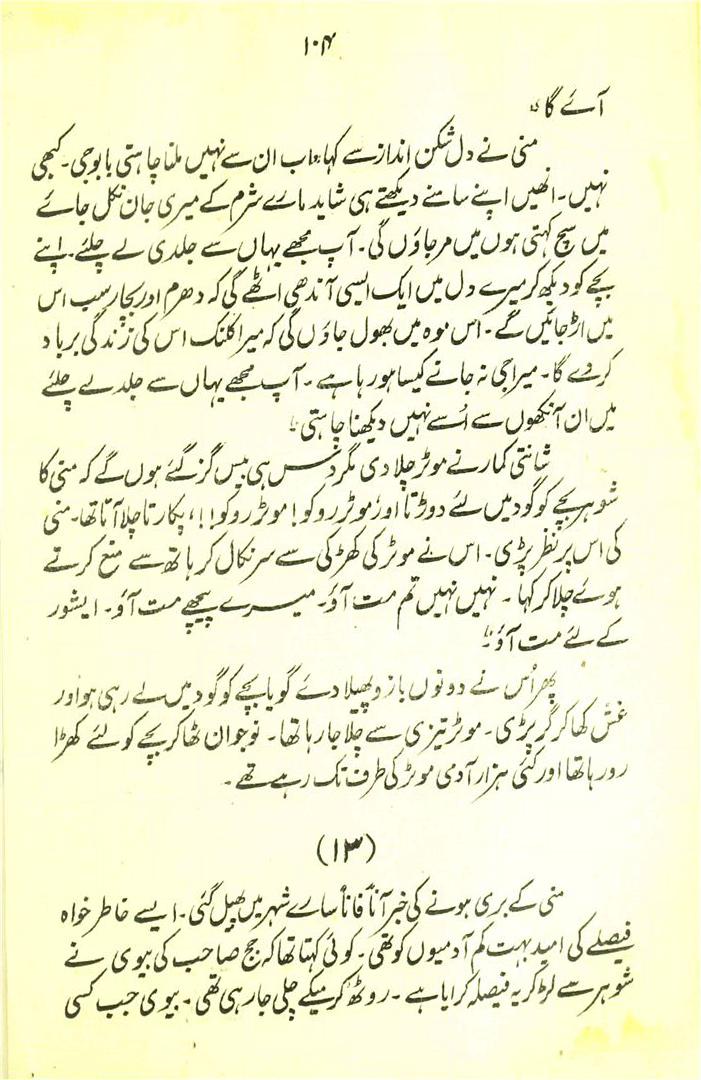 ۱۰۴
آئے گا"
منی نے دل شکن انداز سے کہا "اب ان سے نہیں ملنا چاہتی بابوجی۔ کبھی
نہیں۔ انھیں اپنے سامنے دیکھتے ہی شاید مارے شرم کے میری جان نکل جائے
میں سچ کہتی ہوں میں مرجاؤں گی۔ آپ مجھے یہاں سے جلدی لے چلئے۔ اپنے
بچے کو دیکھ کر میرے دل میں ایک ایسی آندھی اٹھے گی کہ دھرم اور بچار سب اس
میں اڑجائیں گے۔ اس موہ میں بھول جاؤں گی کہ میرا کلنک اس کی زندگی برباد
کردے گا۔ میرا جی نہ جانے کیسا ہورہا ہے۔ آپ مجھے یہاں سے جلد لے چلئے
میں ان آنکھوں سے اُسے نہیں دیکھنا چاہتی"
شانتی کمار نے موٹر چلادی مگر دس ہی بیس گز گئے ہوں گے کہ منی کا
شوہر بچے کو گود میں لئے دوڑتا اور 'موٹر روکو! موٹر روکو!!' پکارتا چلا آتا تھا۔ منی
کی اس پر نظر پڑی۔ اس نے موٹر کی کھڑکی سے سر نکال کر ہاتھ سے منع کرتے
ہوئے چلا کر کہا۔ نہیں نہیں تم مت آؤ۔ میرے پیچھے مت آؤ۔ ایشور
کے لئے مت آؤ"
پھر اُس نے دونوں بازو پھیلا دئے گویا بچے کو گود میں لے رہی ہو اور
غش کھا کر گر پڑی۔ موٹر تیزی سے چلا جارہا تھا۔ نوجوان ٹھاکر بچے کو لئے کھڑا
رو رہا تھا اور کئی ہزار آدمی موٹر کی طرف تک رہے تھے۔
(۱۳)
منی کے بری ہونے کی خبر آناً فاناً سارے شہر میں پھیل گئی۔ ایسے خاطر خواہ
فیصلے کی امید بہت کم آدمیوں کو تھی۔ کوئی کہتا تھا کہ جج صاحب کی بیوی نے
شوہر سے لڑ کر یہ فیصلہ کرایا ہے۔ روٹھ کر میکے چلی جارہی تھی۔ بیوی جب کسی